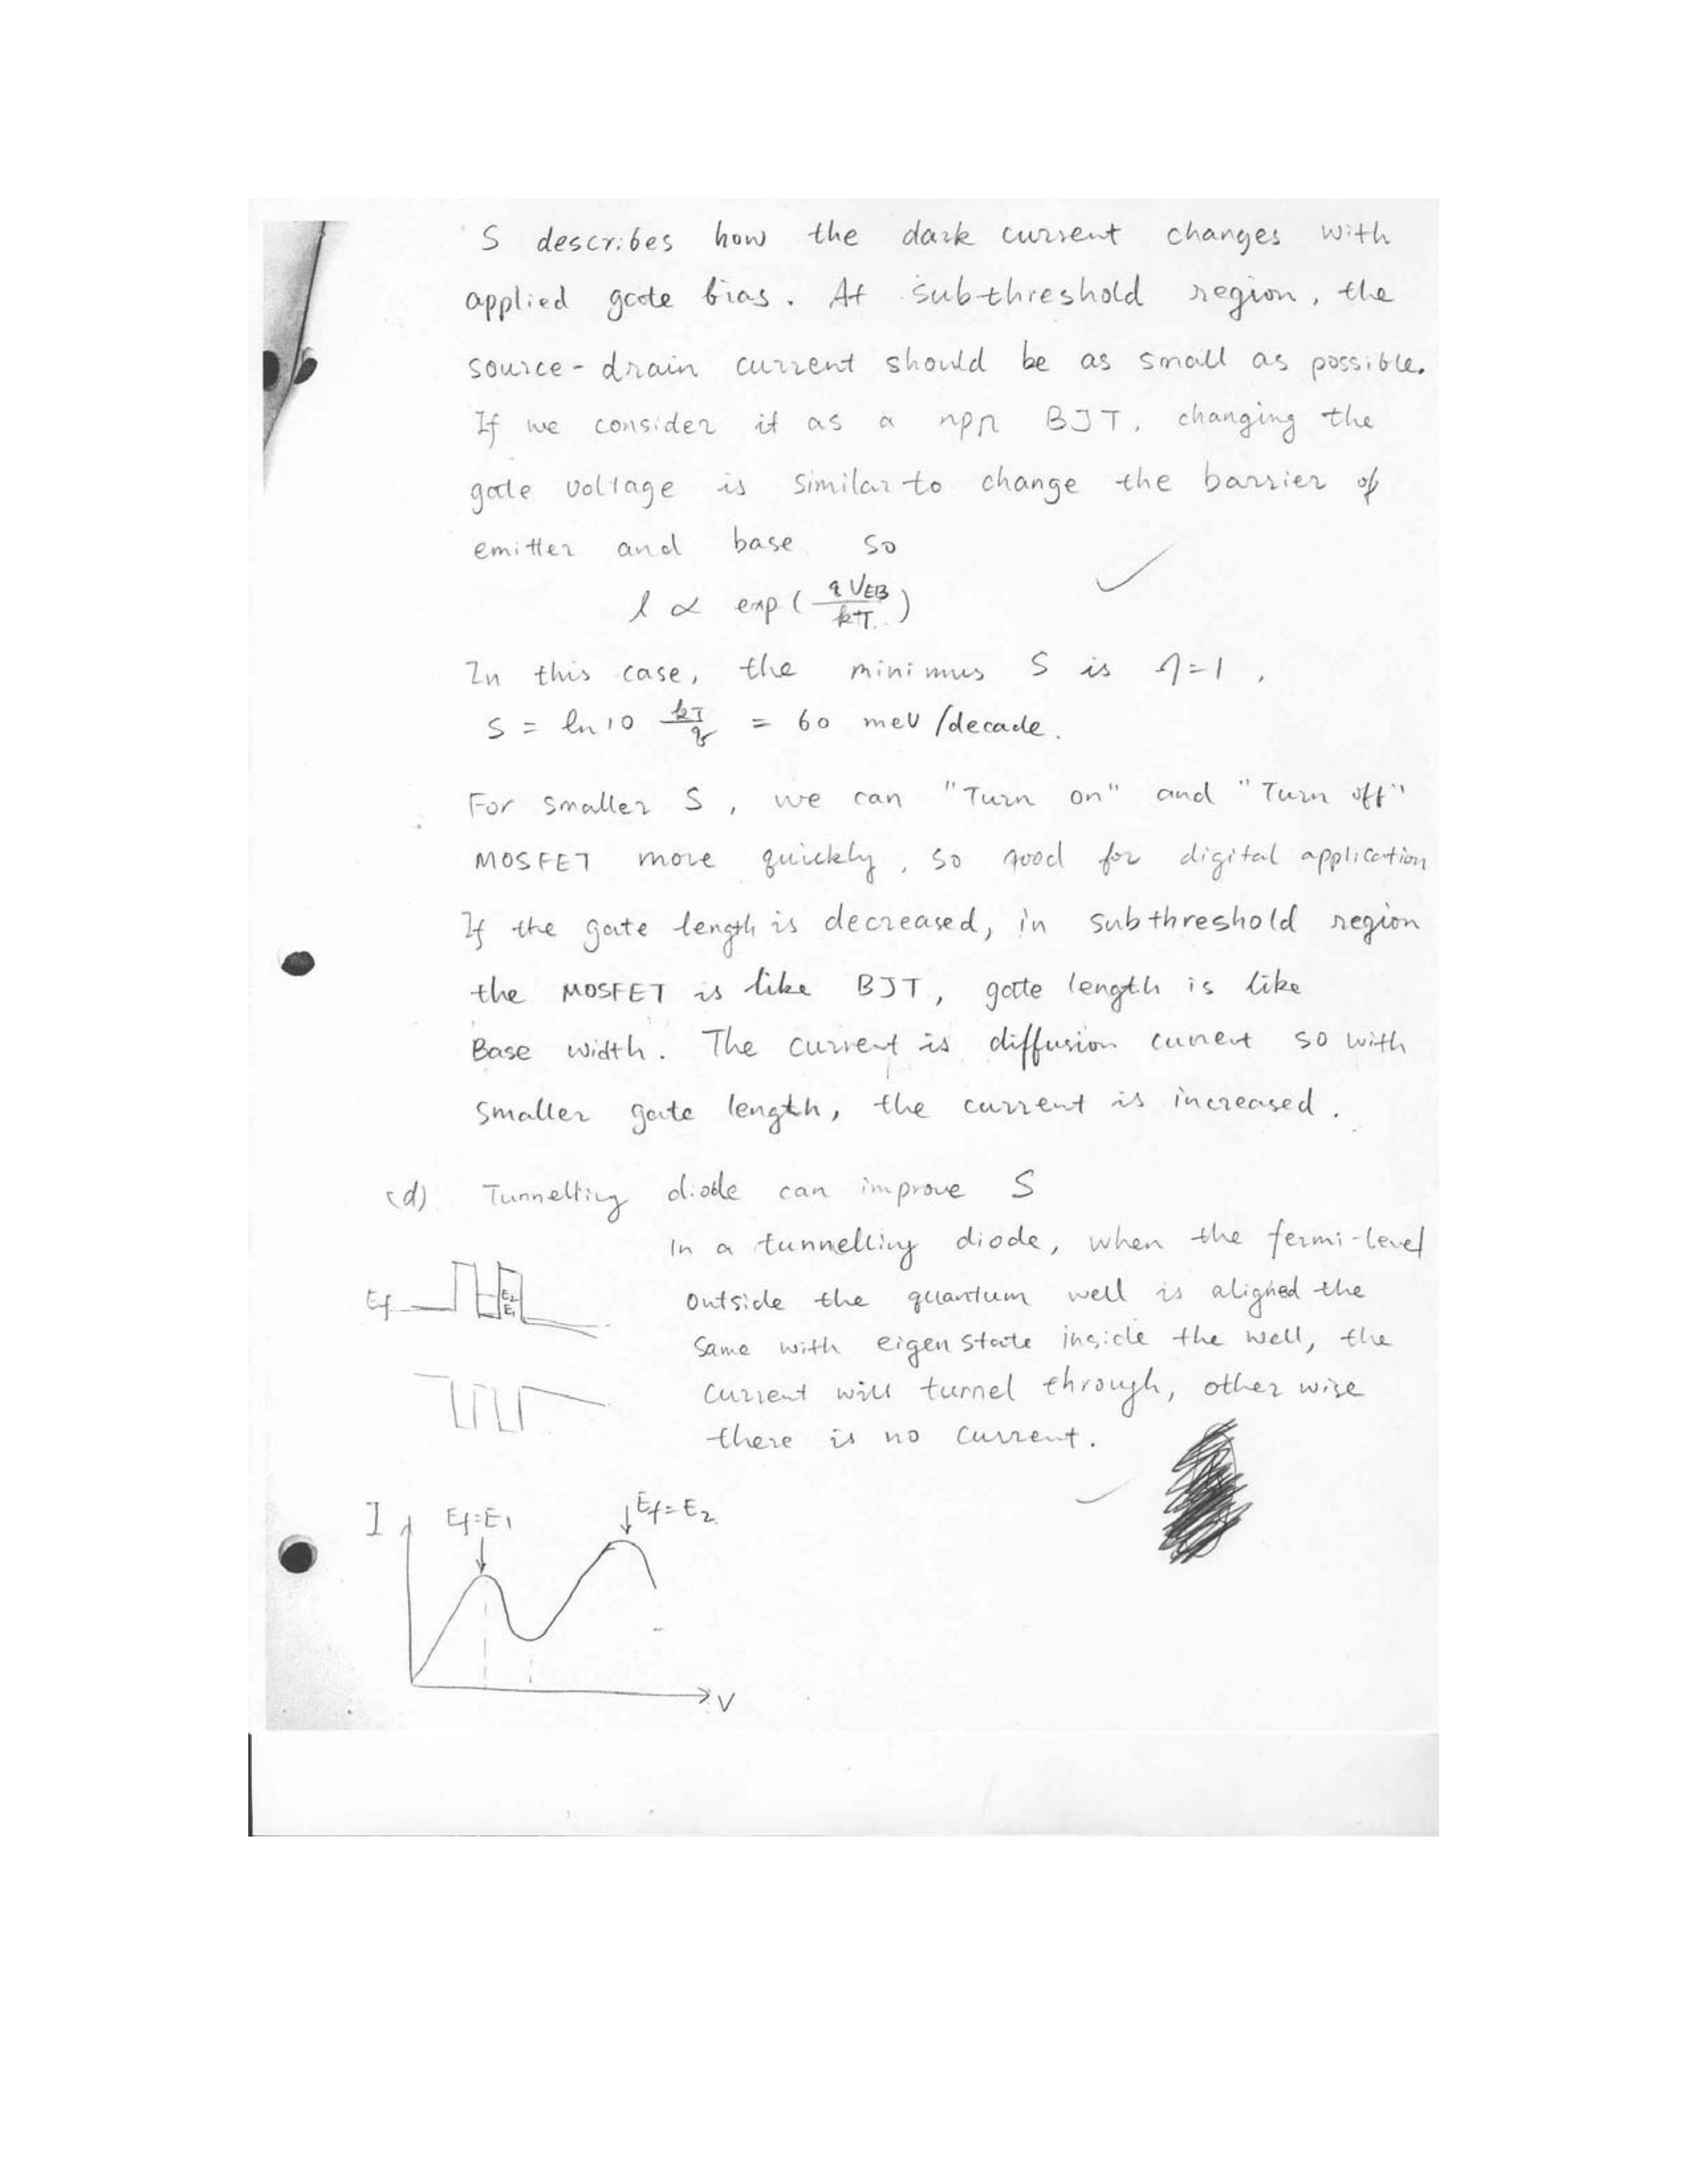 S describes how the dark current changes with
applied gate bias. At subthreshold region, the
source-drain current should be as small as possible.
If we consider it as a npn BJT, changing the
gate voltage is similar to change the barrier of
emitter and base so
I ∝ exp(qVEB/kT)
In this case, the minimus S is η=1,
S = ln10 kT/q = 60 meV/decade.
For smaller S, we can "Turn on" and "Turn off"
MOSFET more quickly, so good for digital application
If the gate length is decreased, in subthreshold region
the MOSFET is like BJT, gate length is like
Base width. The current is diffusion current so with
smaller gate length, the current is increased.
(d) Tunnelling diode can improve S
In a tunnelling diode, when the fermi-level
outside the quantum well is aligned the
same with eigen state inside the well, the
current will tunnel through, other wise
there is no current.
Ef
E2
E1
I
Ef=E1
Ef=E2
V